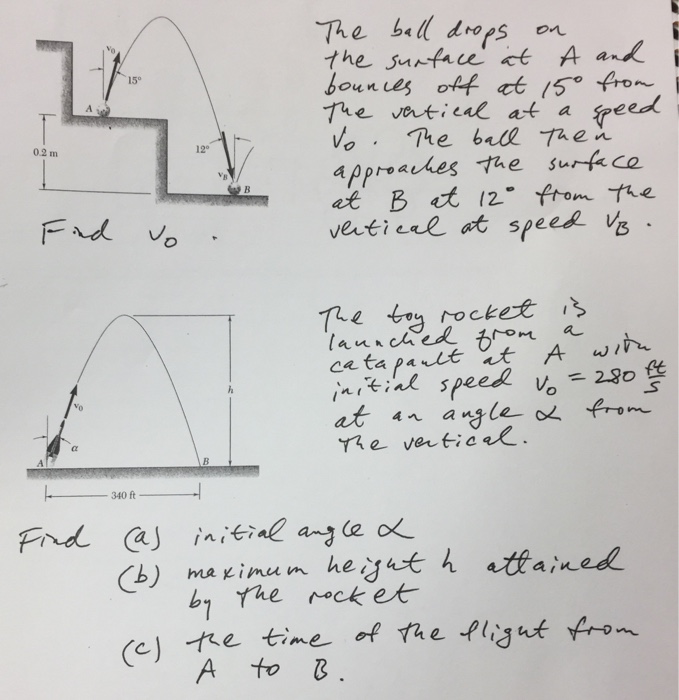 The ball drops on
the surface at A and
bounces off at 15° from
the vertical at a speed
v₀. The ball then
approaches the surface
at B at 12° from the
vertical at speed v_B.
v₀
15°
A
0.2 m
12°
v_B
B
Find v₀.
The toy rocket is
launched from a
catapault at A with
initial speed v₀ = 280 ft/s
at an angle α from
the vertical.
h
v₀
α
A
B
340 ft
Find (a) initial angle α
(b) maximum height h attained
by the rocket
(c) the time of the flight from
A to B.